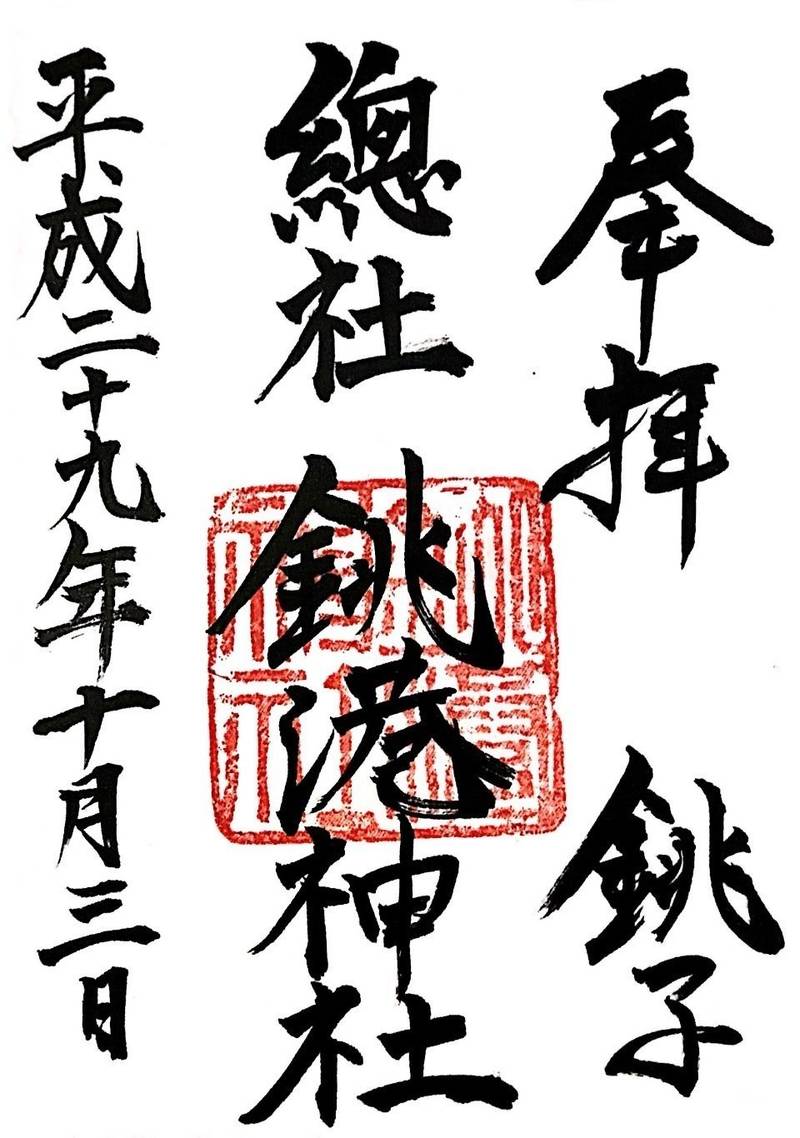 奉拝 銚子
總社 銚港神社
平成二十九年十月三日